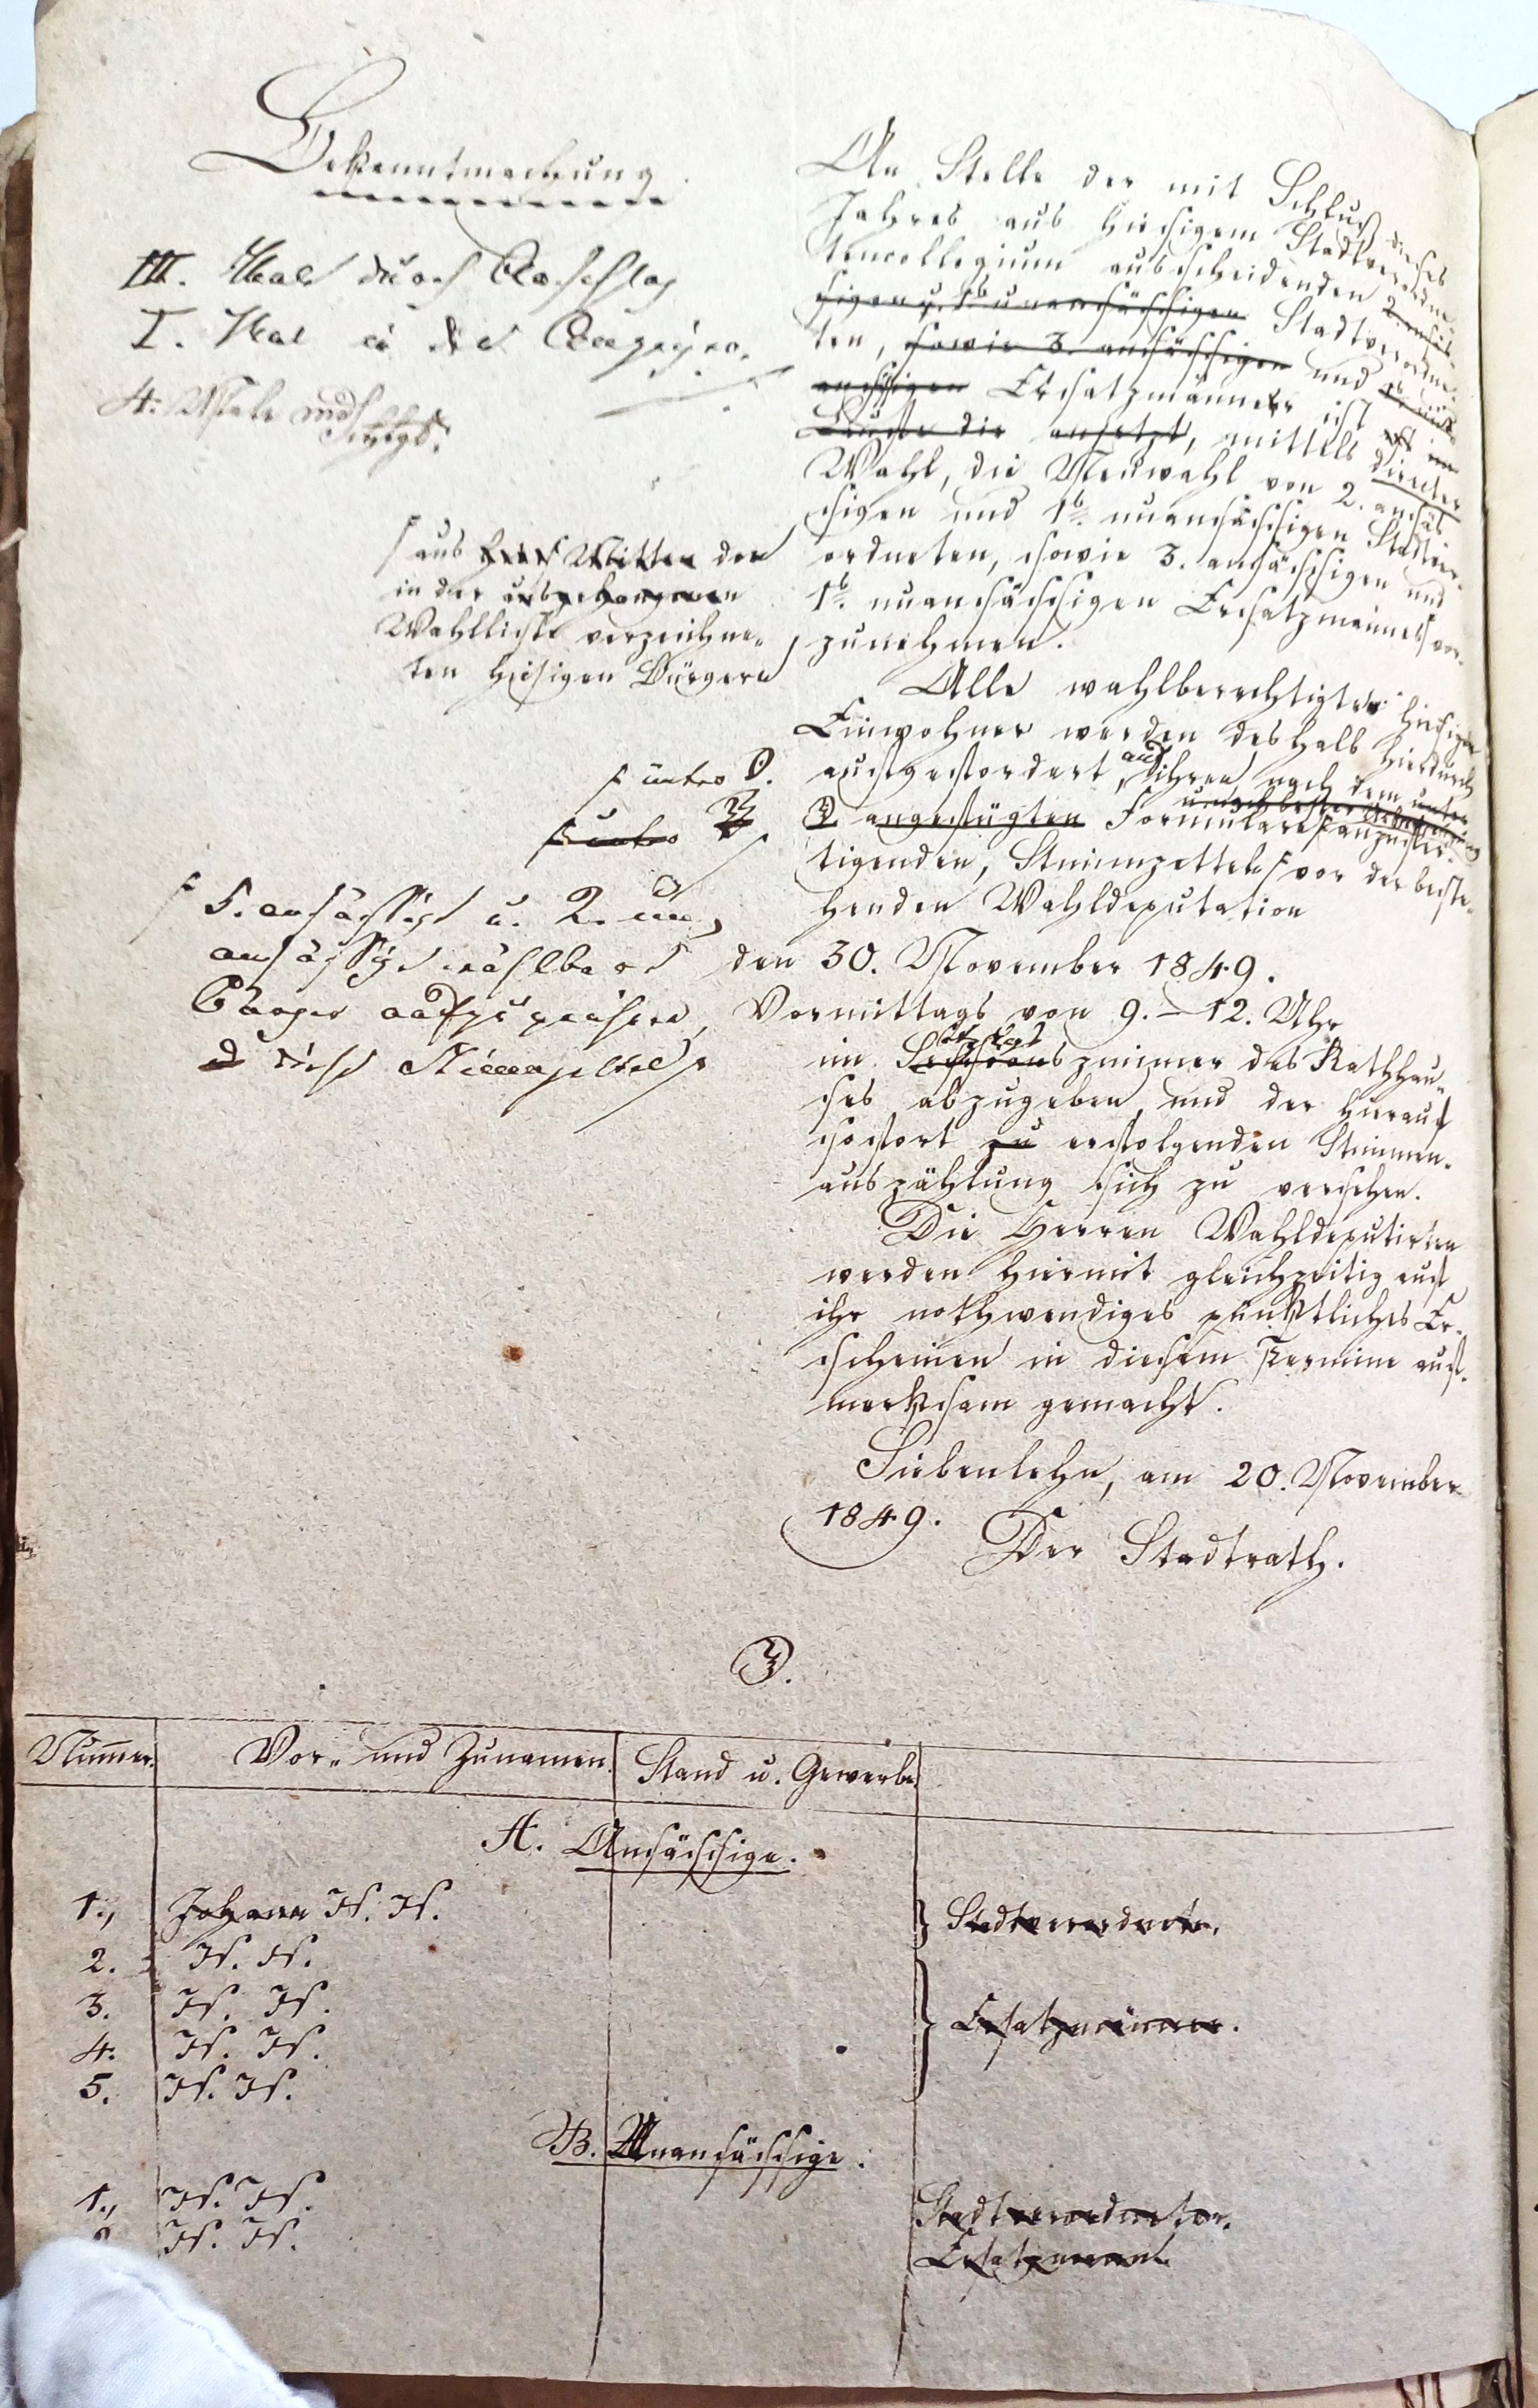 Bekanntmachung.
III. Mal durch Anschlag
I. Mal in der
4. Male mdl.
An Stelle der mit Schluß dieses
Jahres aus hiesigem Stadtverord-
netencollegium ausscheidenden 2. ansäs-
sigen u. 1b unansässigen Stadtverordne-
ten, sowie 3. ansässigen und 1b un-
ansässigen Ersatzmänner ist
ansetzt, mittels directer
Wahl, die Neuwahl von 2. ansäs-
sigen und 1b. unansässigen Stadtver-
ordneten, sowie 3. ansässigen und
1b. unansässigen Ersatzmannes vor-
zunehmen.
aus Mitten der
in der ausgehangenen
Wahlliste verzeichne-
ten hiesigen Bürgern
Alle wahlberechtigten hiesigen
Einwohner werden deshalb hierdurch
aufgefordert, auf ihren nach dem unter
☽ angefügten Formulare anzufer-
tigenden, Stimmzetteln vor der beste-
henden Wahldeputation
5. ansässige u. 2. un-
ansässige wählbare
Bürger aufzuzeichnen,
diese Stimmzettel
den 30. November 1849.
Vormittags von 9. – 12. Uhr
im Sessionszimmer des Rathhau-
ses abzugeben und der hierauf
sofort zu erfolgenden Stimmen-
auszählung sich zu versehen.
Die Herren Wahldeputirten
werden hiermit gleichzeitig auf
ihr nothwendiges pünktliches Er-
scheinen in diesem Termine auf-
merksam gemacht.
Siebenlehn, am 20. November
1849.
Der Stadtrath.
☽.
Nummer. Vor- und Zunamen. Stand u. Gewerbe.
A. Ansässige.
1., Johann N. N. Stadtverordnete.
2. N. N.
3. N. N. Ersatzmänner.
4. N. N.
5. N. N.
B. Unansässige.
1., N. N. Stadtverordneter.
N. N. Ersatzmann.